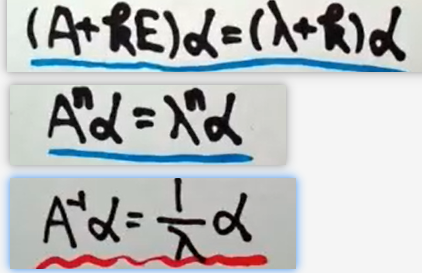 (A+kE)α=(λ+k)α
Aⁿα=λⁿα
A⁻¹α=1/λ α